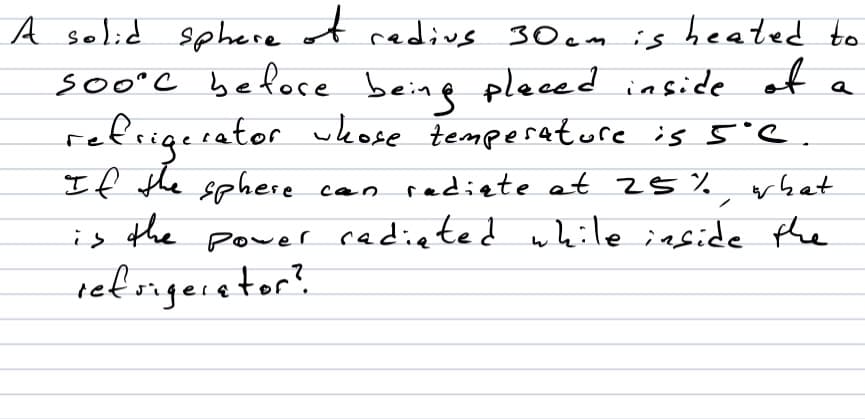 A solid sphere of radius 30cm is heated to
500°C before being placed inside of a
refrigerator whose temperature is 5°C.
If the sphere can radiate at 25%, what
is the power radiated while inside the
refrigerator?